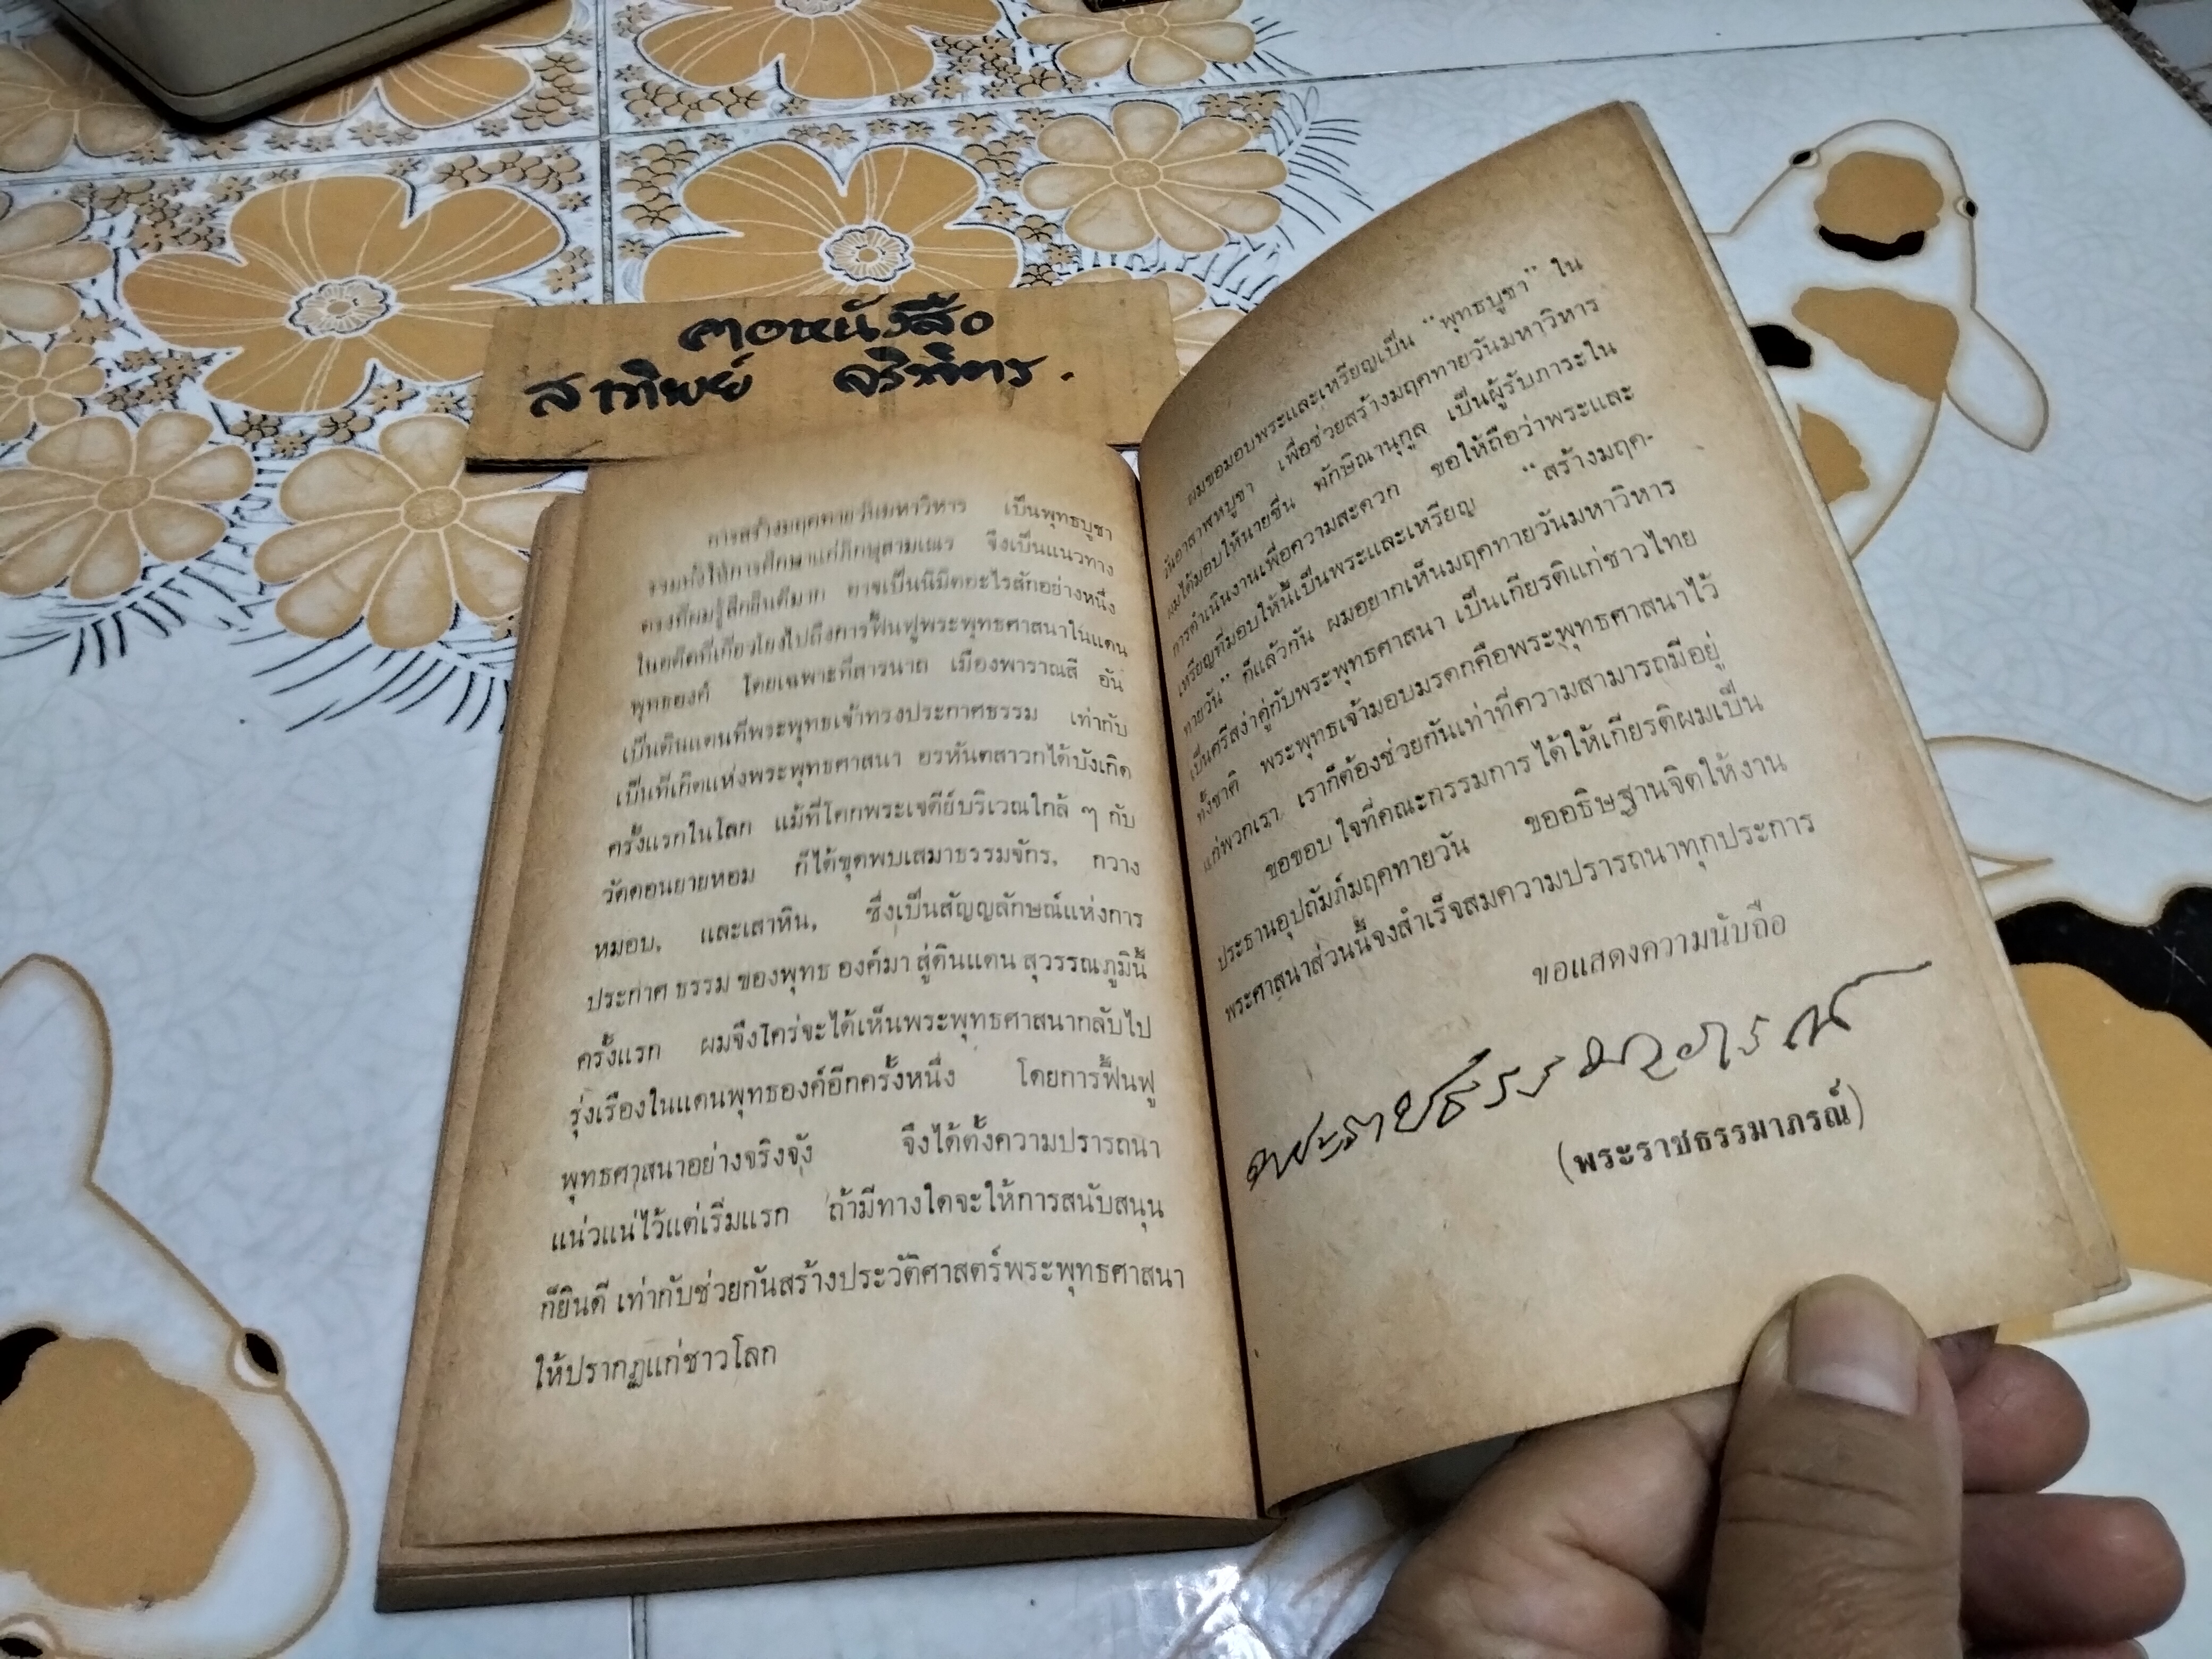 คอหนังสือ
สาทิพย์ จริพิตร.
การสร้างมฤคทายวันมหาวิหาร เป็นพุทธบูชา
รวมทั้งให้การศึกษาแก่ภิกษุสามเณร จึงเป็นแนวทาง
ตรงที่ผมรู้สึกยินดีมาก อาจเป็นนิมิตอะไรสักอย่างหนึ่ง
ในอดีตที่เกี่ยวโยงไปถึงการฟื้นฟูพระพุทธศาสนาในแดน
พุทธองค์ โดยเฉพาะที่สารนาถ เมืองพาราณสี อัน
เป็นดินแดนที่พระพุทธเจ้าทรงประกาศธรรม เท่ากับ
เป็นที่เกิดแห่งพระพุทธศาสนา อรหันตสาวกได้บังเกิด
ครั้งแรกในโลก แม้ที่โคกพระเจดีย์บริเวณใกล้ ๆ กับ
วัดดอนยายหอม ก็ได้ขุดพบเสมาธรรมจักร, กวาง
หมอบ, และเสาหิน, ซึ่งเป็นสัญญลักษณ์แห่งการ
ประกาศ ธรรม ของพุทธ องค์มา สู่ดินแดน สุวรรณภูมินี้
ครั้งแรก ผมจึงใคร่จะได้เห็นพระพุทธศาสนากลับไป
รุ่งเรืองในแดนพุทธองค์อีกครั้งหนึ่ง โดยการฟื้นฟู
พุทธศาสนาอย่างจริงจัง จึงได้ตั้งความปรารถนา
แน่วแน่ไว้แต่เริ่มแรก ถ้ามีทางใดจะให้การสนับสนุน
ก็ยินดี เท่ากับช่วยกันสร้างประวัติศาสตร์พระพุทธศาสนา
ให้ปรากฏแก่ชาวโลก
ผมขอมอบพระและเหรียญเป็น “พุทธบูชา” ใน
วันอาสาฬหบูชา เพื่อช่วยสร้างมฤคทายวันมหาวิหาร
ผมได้มอบให้นายชื่น ทักษิณานุกูล เป็นผู้รับภาระใน
การดำเนินงานเพื่อความสะดวก ขอให้ถือว่าพระและ
เหรียญที่มอบให้นี้เป็นพระและเหรียญ “สร้างมฤค-
ทายวัน” ก็แล้วกัน ผมอยากเห็นมฤคทายวันมหาวิหาร
เป็นศรีสง่าคู่กับพระพุทธศาสนา เป็นเกียรติแก่ชาวไทย
ทั้งชาติ พระพุทธเจ้ามอบมรดกคือพระพุทธศาสนาไว้
แก่พวกเรา, เราก็ต้องช่วยกันเท่าที่ความสามารถมีอยู่
ขอขอบ ใจที่คณะกรรมการ ได้ให้เกียรติผมเป็น
ประธานอุปถัมภ์มฤคทายวัน ขออธิษฐานจิตให้งาน
พระศาสนาส่วนนี้จงสำเร็จสมความปรารถนาทุกประการ
ขอแสดงความนับถือ
พระราชธรรมาภรณ์
(พระราชธรรมาภรณ์)